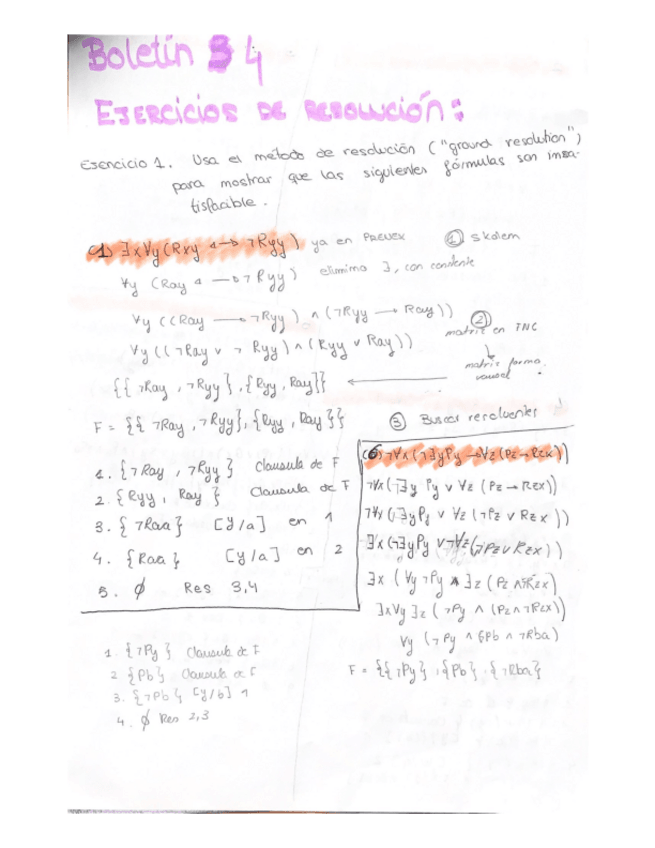 Boletín 4
EJERCICIOS DE RESOLUCIÓN:
Ejercicio 1. Usa el método de resolución ("ground resolution")
para mostrar que las siguientes fórmulas son insa-
tisfacible.
1) ∃x∀y(Rxy ↔ ¬Ryy) ya en PRENEX ① Skolem
∀y (Ray ↔ ¬Ryy) elimino ∃, con constante
∀y ((Ray → ¬Ryy) ∧ (¬Ryy → Ray)) ②
matriz en FNC
∀y ((¬Ray ∨ ¬Ryy) ∧ (Ryy ∨ Ray))
matriz forma
clausal
{{¬Ray, ¬Ryy}, {Ryy, Ray}} ←
F = {{¬Ray, ¬Ryy}, {Ryy, Ray}} ③ Buscar resolventes
1. {¬Ray, ¬Ryy} Clausula de F
2. {Ryy, Ray} Clausula de F
3. {¬Raa} [y/a] en 1
4. {Raa} [y/a] en 2
5. ∅ Res 3,4
6) ¬∀x(¬∃yPy → ∀z(Pz → Rzx))
¬∀x(¬∃y Py ∨ ∀z (Pz → Rzx))
¬∀x(¬∃yPy ∨ ∀z (¬Pz ∨ Rzx))
∃x(¬∃yPy ∨ ¬∀z(¬Pz ∨ Rzx))
∃x (∀y ¬Py ∧ ∃z (Pz ∧ ¬Rzx)
∃x∀y ∃z (¬Py ∧ (Pz ∧ ¬Rzx))
∀y (¬Py ∧ Pb ∧ ¬Rba)
F = {{¬Py}, {Pb}, {¬Rba}
1. {¬Py} Clausula de F
2 {Pb} Clausula de F
3. {¬Pb} [y/b] 1
4. ∅ Res 2,3